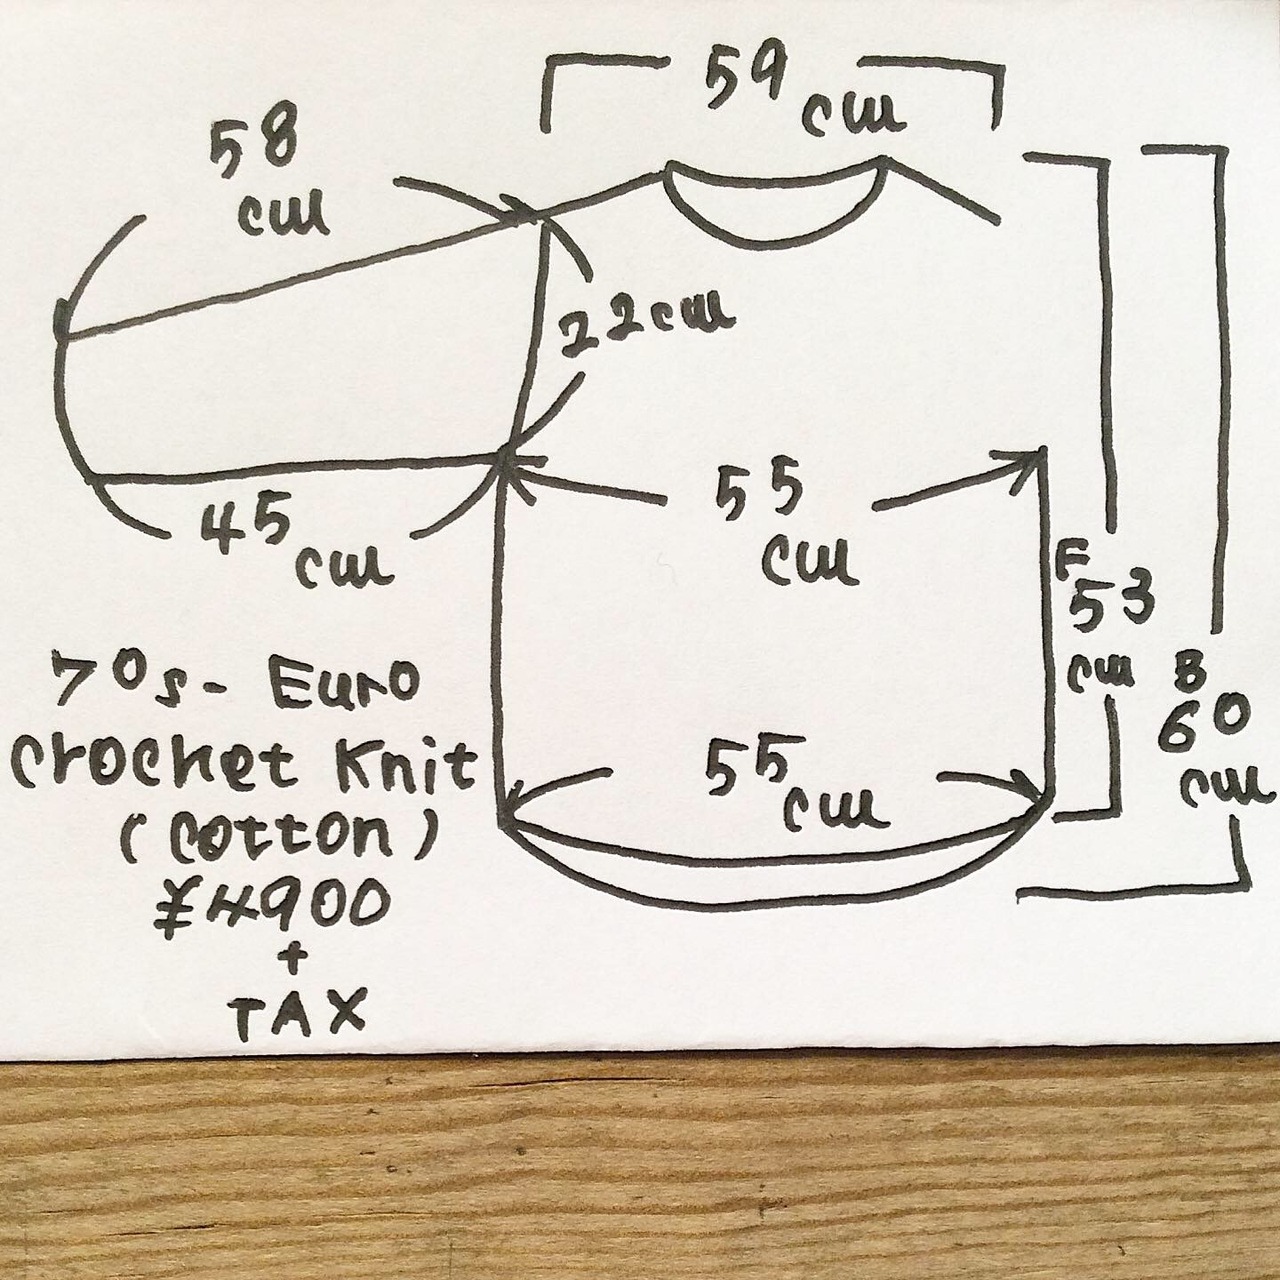 59
cm
58
cm
22cm
55
cm
45
cm
F
53
cm
B
60
cm
55
cm
70s- Euro
crochet Knit
(cotton)
¥4900
+
TAX